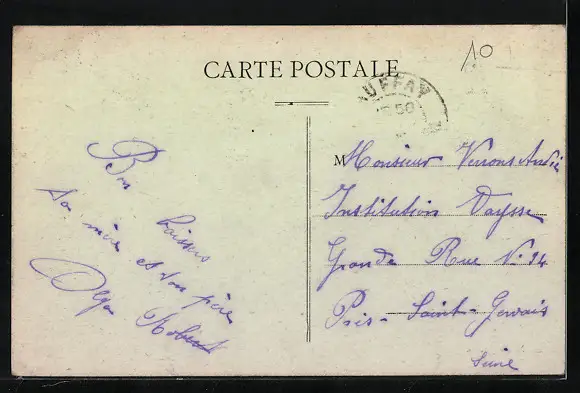 10
CARTE POSTALE
UFFAY
50
Bons baisers
ta mère et ton père
Olga Robert
M Monsieur André
Institution Vaysse
Grande Rue N° 14
Prés-Saint-Gervais
Seine